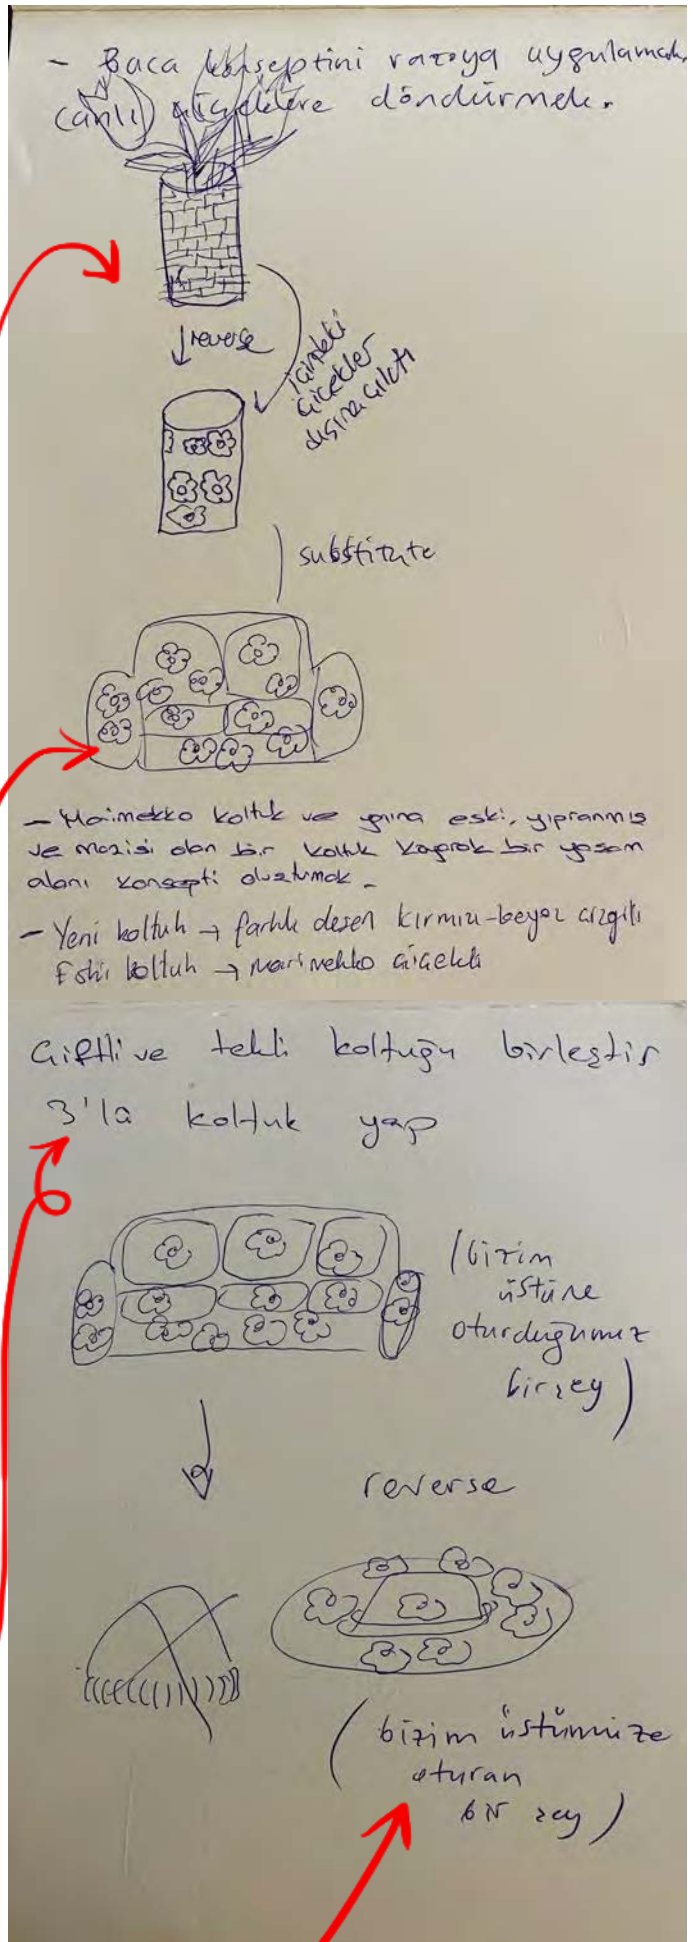 - Baca konseptini vazoya uygulamak,
canlı çiçeklere döndürmek.
reverse
içindeki
çiçekler
dışına çıktı
substitute
- Marimekko koltuk ve yanına eski, yıpranmış
ve mazisi olan bir koltuk koyarak bir yaşam
alanı konsepti oluşturmak.
- Yeni koltuk → farklı desen kırmızı-beyaz çizgili
Eski koltuk → marimekko çiçekli
Çiftli ve tekli koltuğu birleştir
3'lü koltuk yap
(bizim
üstüne
oturduğumuz
birşey)
reverse
(bizim üstümüze
oturan
bir şey)